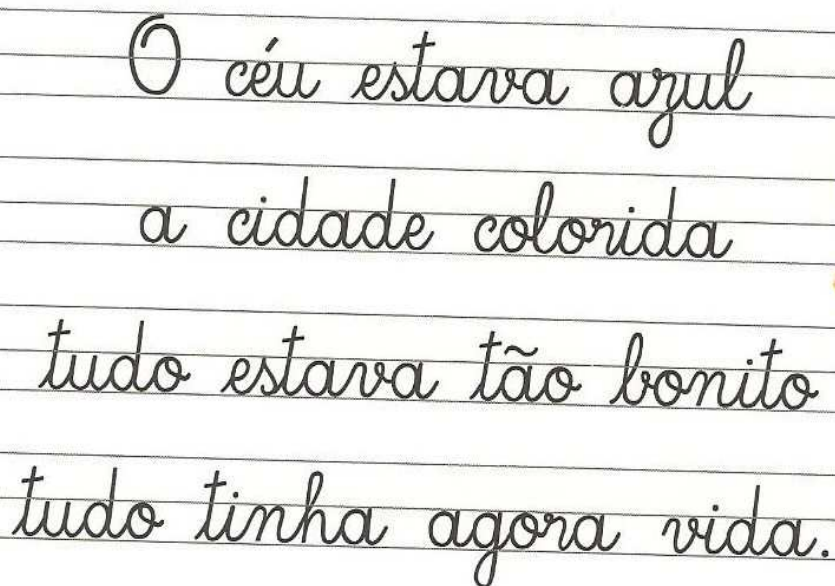 O céu estava azul
a cidade colorida
tudo estava tão bonito
tudo tinha agora vida.